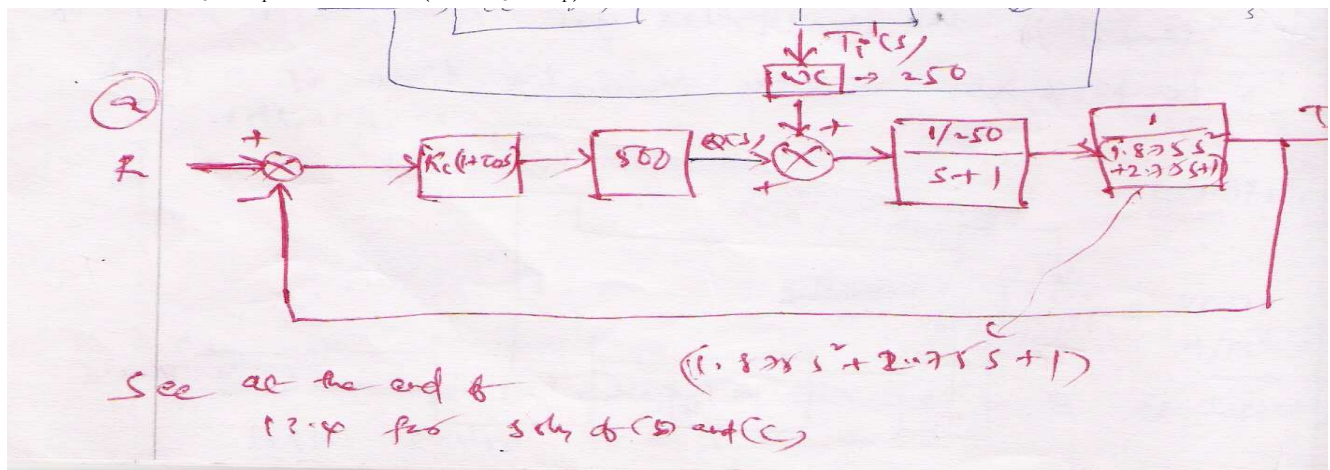 Ti'(s)
WC → 250
a
+
+
T
R
Kc(1+τDs)
500
Q(s)
1/250
s+1
1
1.875s²
+2.75s+1)
-
+
(1.875s²+2.75s+1)
See at the end of
13.4 for soln of (b) and (c)